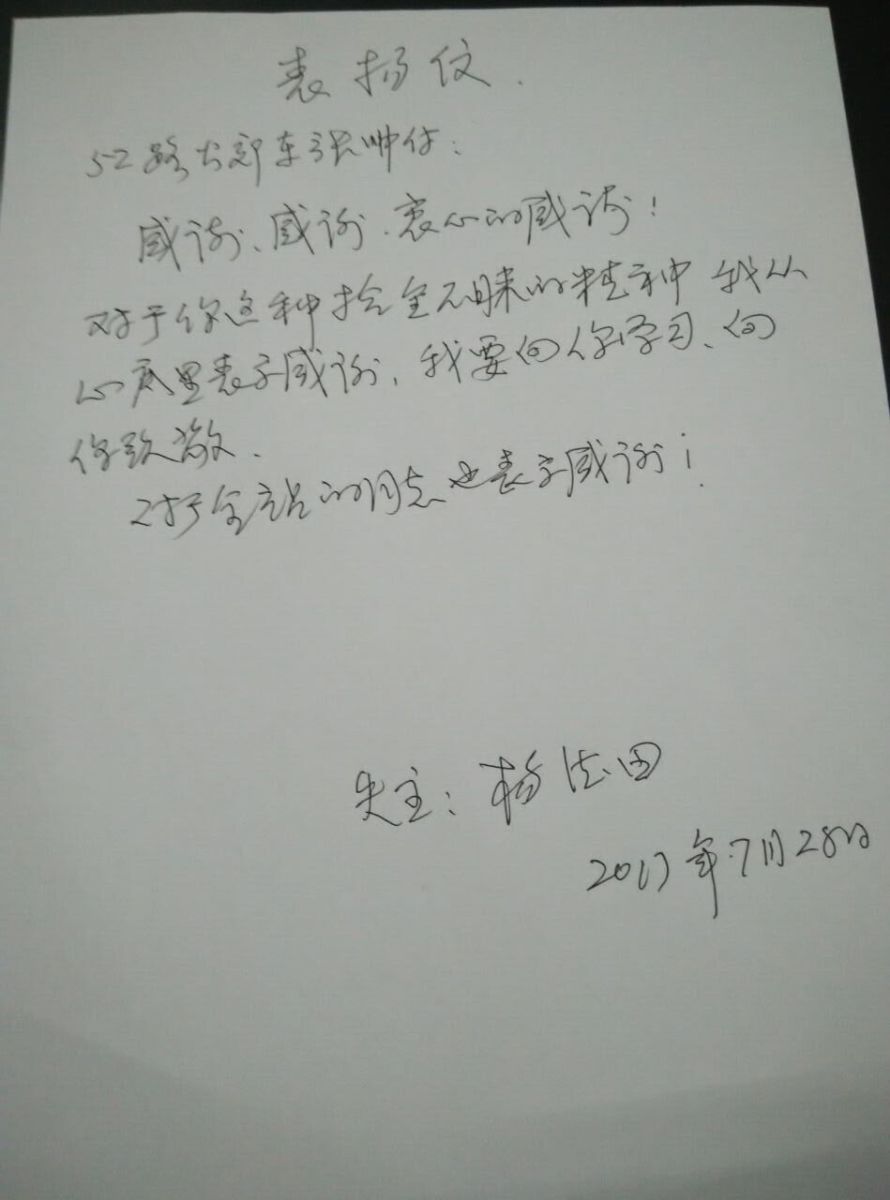 表扬信
52路公交车张帅付:
感谢、感谢、衷心的感谢!
对于你这种拾金不昧的精神 我从
心底里表示感谢,我要向你学习、向
你致敬.
对于全站的同志也表示感谢!
失主:杨法田
2017年7月28日